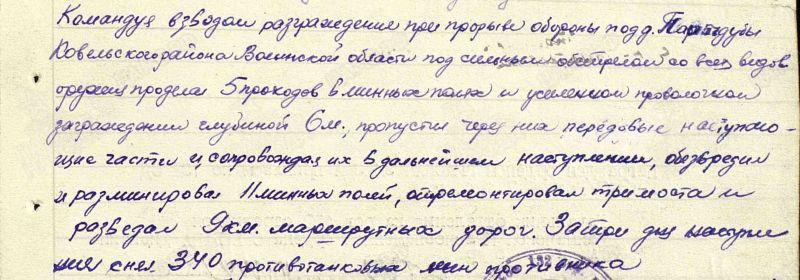 Командуя взводом разграждения при прорыве обороны под д.
Ковельского района Волынской области под сильным обстрелом со всех видов
оружия проделал 5 проходов в минных полях и усиленном проволочном
заграждении глубиной 6 м., пропустил через них передовые наступаю-
щие части и сопровождая их в дальнейшем наступлении, обезвредил
и разминировал 11 минных полей, отремонтировал три моста и
разведал 9 км. маршрутных дорог. За три дня наступле
ния снял 340 противотанковых мин противника